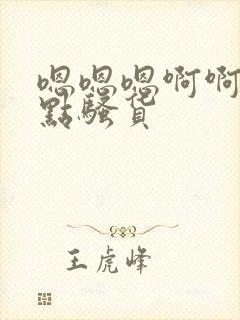 嗯嗯嗯啊啊
點騷貨
王虎峰